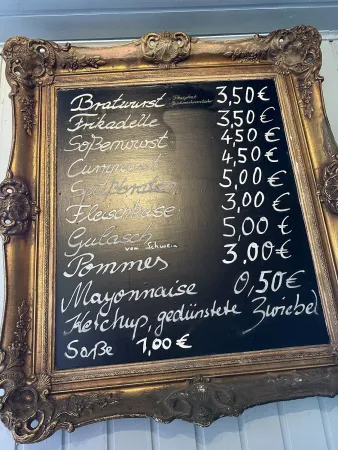 Bratwurst 3,50 €
Frikadelle 3,50 €
Soßenwurst 4,50 €
Currywurst 4,50 €
5,00 €
Fleischkäse 3,00 €
Gulasch vom Schwein 5,00 €
Pommes 3,00 €
Mayonnaise 0,50 €
Ketchup, gedünstete Zwiebel
Soße 1,00 €